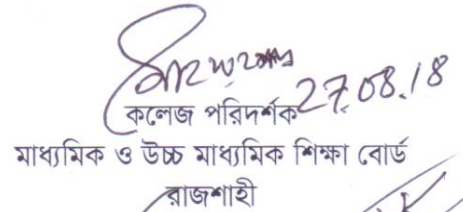 27.08.18
কলেজ পরিদর্শক
মাধ্যমিক ও উচ্চ মাধ্যমিক শিক্ষা বোর্ড
রাজশাহী